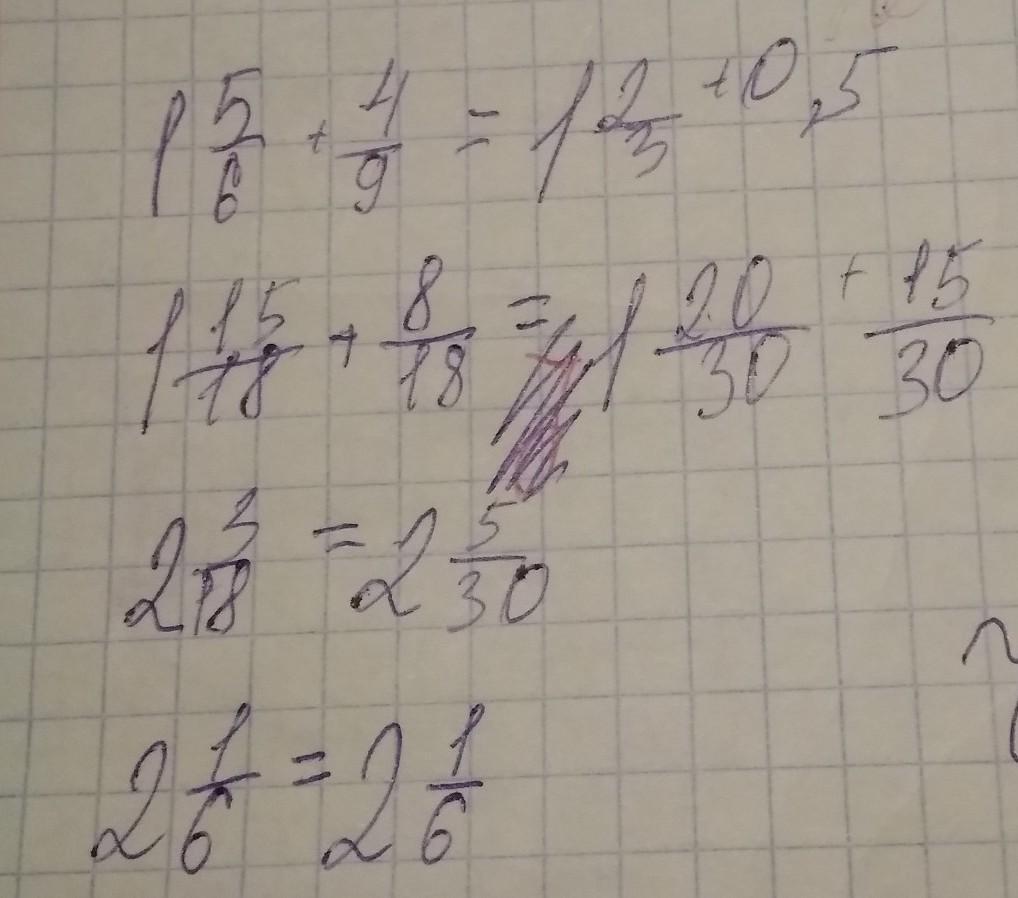 1 5/6 + 4/9 = 1 2/3 + 0,5
1 15/18 + 8/18 = 1 20/30 + 15/30
2 3/18 = 2 5/30
2 1/6 = 2 1/6